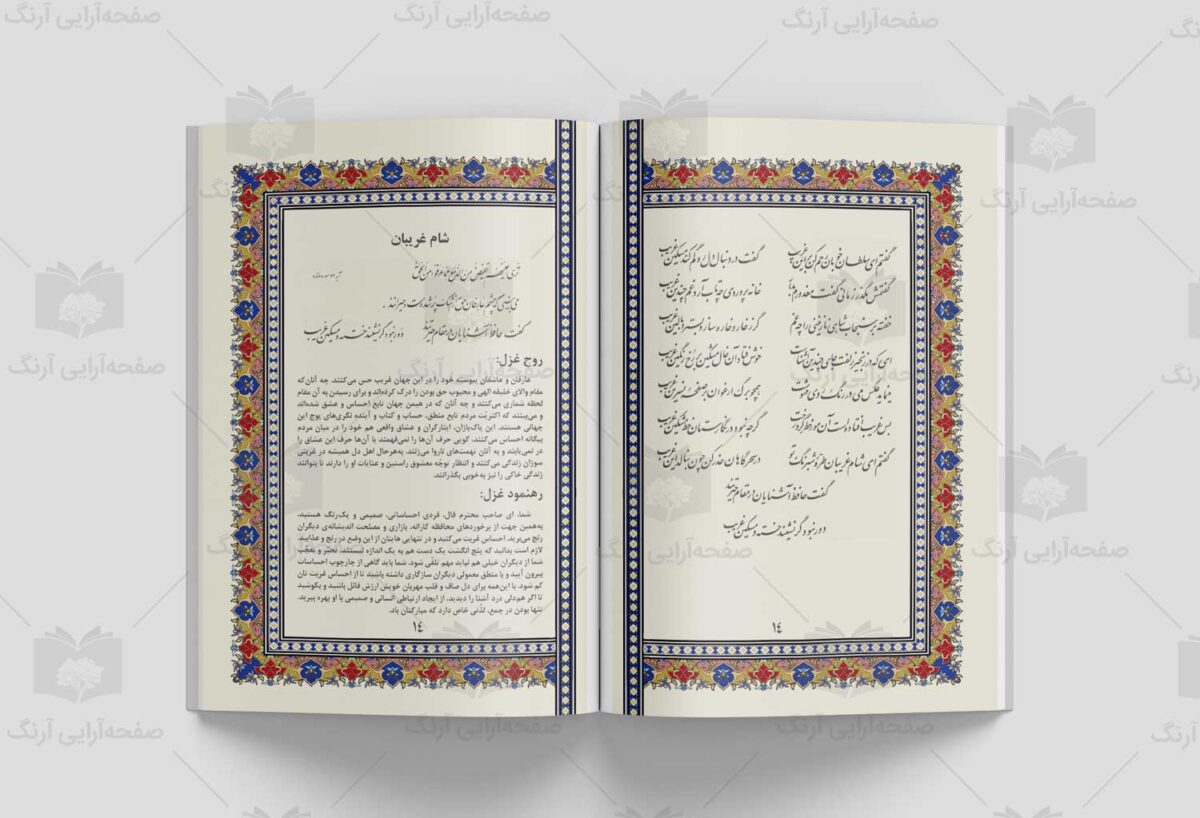 گفتم ای سلطان خوبان رحم کن بر این غریب گفت در دنبال دل ره گم کند مسکین غریب
گفتمش مگذر زمانی گفت معذورم بدار خانه پروردی چه تاب آرد غم چندین غریب
خفته بر سنجاب شاهی نازنینی را چه غم گر ز خار و خاره سازد بستر و بالین غریب
ای که در زنجیر زلفت جای چندین آشناست خوش فتاد آن خال مشکین بر رخ رنگین غریب
می‌نماید عکس می در رنگ روی مه‌وشت همچو برگ ارغوان بر صفحه نسرین غریب
بس غریب افتاده است آن مور خط گرد رخت گرچه نبود در نگارستان خط مشکین غریب
گفتم ای شام غریبان طره شبرنگ تو در سحرگاهان حذر کن چون بنالد این غریب
گفت حافظ آشنایان در مقام حیرتند
دور نبود گر نشیند خسته و مسکین غریب
١٤
شام غریبان
تری اعینهم تفیض من الدمع مما عرفوا من الحق
گفت حافظ آشنایان در مقام حیرتند دور نبود گر نشیند خسته و مسکین غریب
روح غزل:
عارفان و عاشقان پیوسته خود را در این جهان غریب حس می‌کنند. چه آنان‌که
مقام والای خلیفه الهی و محبوب حق بودن را درک کرده‌اند و برای رسیدن به آن مقام
لحظه شماری می‌کنند و چه آنان که در همین جهان تابع احساس و عشق شده‌اند
و می‌بینند که اکثریّت مردم تابع منطق، حساب و کتاب و آینده نگری‌های پوچ این
جهانی هستند. این پاک‌بازان، ایثارگران و عشاق واقعی هم خود را در میان مردم
بیگانه احساس می‌کنند. گویی حرف آن‌ها را نمی‌فهمند یا آن‌ها حرف این عشاق را
در نمی‌یابند و به آنان تهمت‌های ناروا می‌زنند. به‌هرحال اهل دل همیشه در غربتی
سوزان زندگی می‌کنند و انتظار توجّه معشوق راستین و عنایات او را دارند تا بتوانند
زندگی خاکی را نیز به‌خوبی بگذرانند.
رهنمود غزل:
شما، ای صاحب محترم فال، فردی احساساتی، صمیمی و یک‌رنگ هستید.
به‌همین جهت از برخوردهای محافظه کارانه، بازاری و مصلحت اندیشانه‌ی دیگران
رنج می‌برید. احساس غربت می‌کنید و در تنهایی هایتان از این وضع در رنج و عذابید.
لازم است بدانید که پنج انگشت یک دست هم به یک اندازه نیستند. تحیّر و تعجّب
شما از دیگران خیلی هم نباید مهم تلقّی شود. شما باید گاهی از چارچوب احساسات
بیرون آیید و با منطق معمولی دیگران سازگاری داشته باشید تا از احساس غربت تان
کم شود. با این‌همه برای دل صاف و قلب مهربان خویش ارزش قائل باشید و بکوشید
تا اگر هم‌دلی درد آشنا را دیدید، از ایجاد ارتباطی انسانی و صمیمی با او بهره ببرید.
تنها بودن در جمع، لذّتی خاص دارد که مبارکتان باد.
١٤
صفحه‌آرایی آرنگ